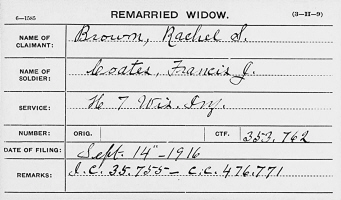 6—1535 REMARRIED WIDOW. (3—II—9)
NAME OF CLAIMANT: Brown, Rachel S.
NAME OF SOLDIER: Coates, Francis J.
SERVICE: H 7 Wis. Inf.
NUMBER: ORIG. CTF. 353.762
DATE OF FILING: Sept. 14"—1916
REMARKS: I.C. 35.755— C.C. 476.771